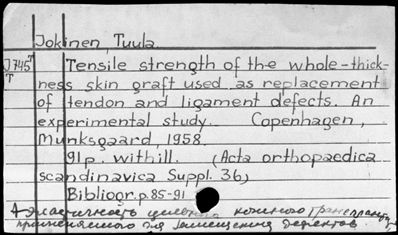 Jokinen, Tuula.
J745 T Tensile strength of the whole-thick-
T ness skin graft used as replacement
of tendon and ligament defects. An
experimental study. Copenhagen,
Munksgaard, 1958.
91p. withill. (Acta orthopaedica
scandinavica Suppl. 36)
Bibliogr. p. 85-91
Эластичность цельного кожного трансплантата,
применяемого для замещения дефектов